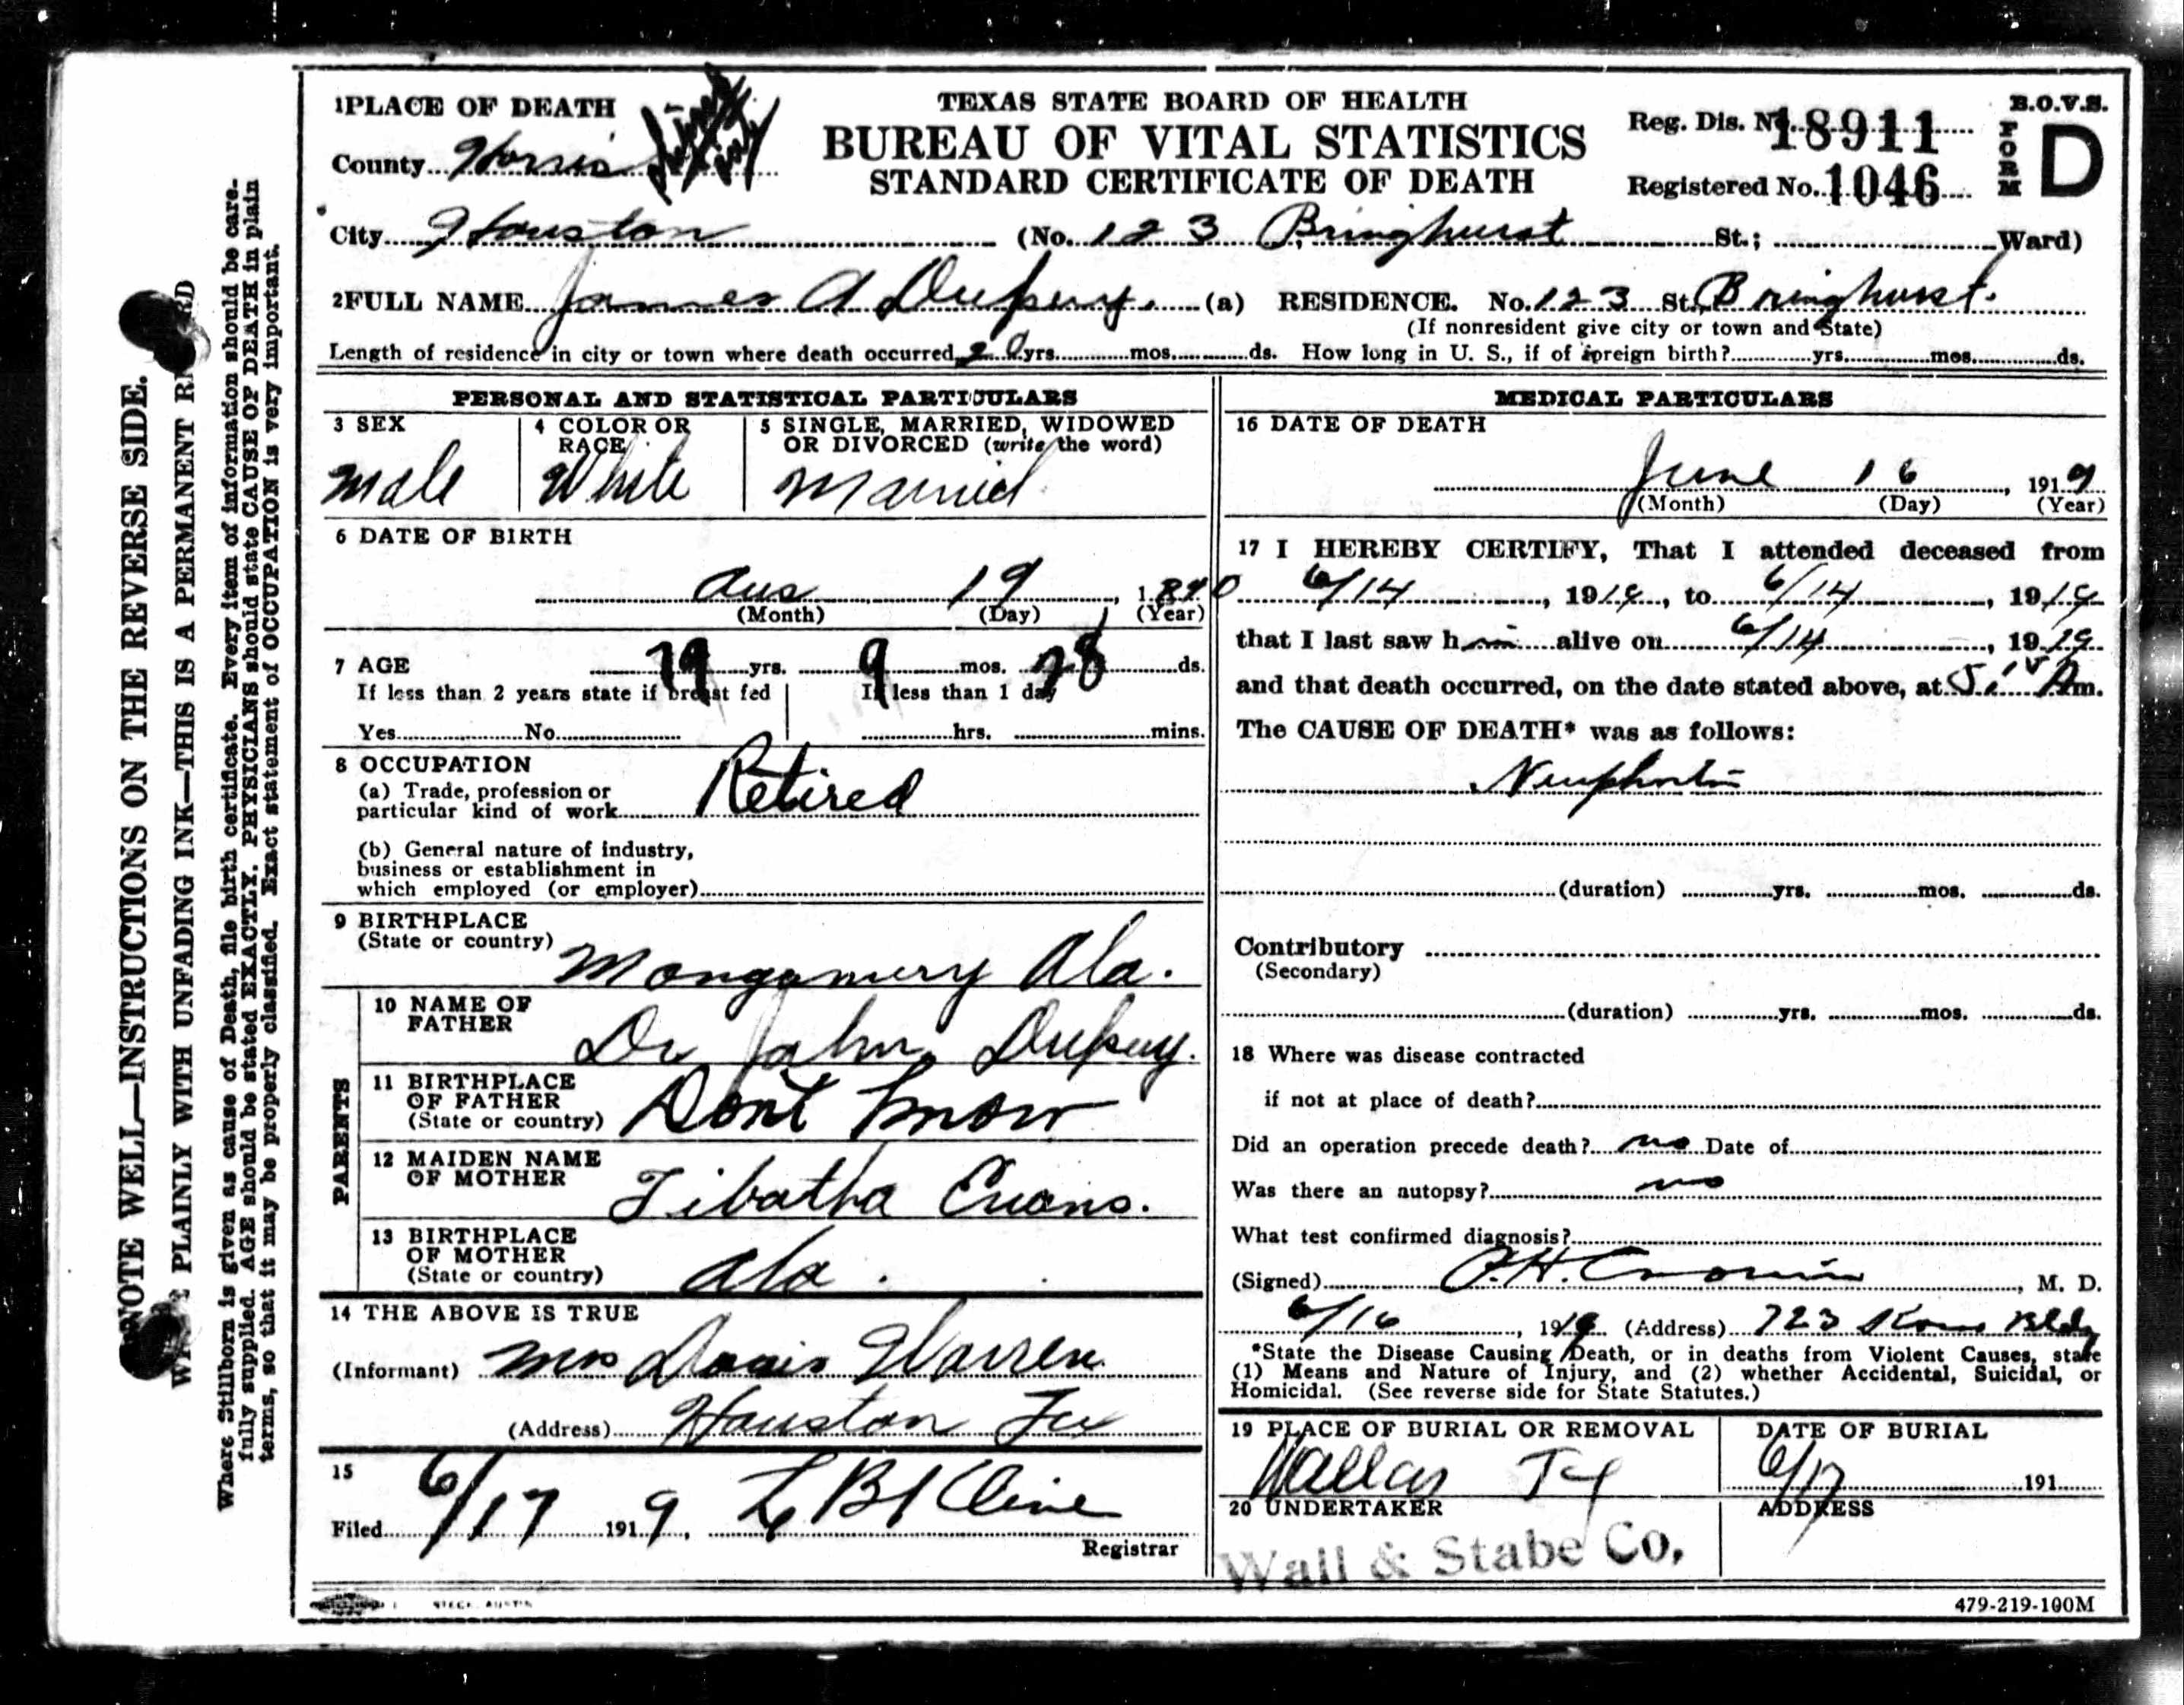 NOTE WELL—INSTRUCTIONS ON THE REVERSE SIDE.
PLAINLY WITH UNFADING INK—THIS IS A PERMANENT
Where Stillborn is given as cause of Death, file birth certificate. Every item of information should be care-
fully supplied. AGE should be stated EXACTLY. PHYSICIANS should state CAUSE OF DEATH in plain
terms, so that it may be properly classified. Exact statement of OCCUPATION is very important.
1 PLACE OF DEATH
TEXAS STATE BOARD OF HEALTH
BUREAU OF VITAL STATISTICS
STANDARD CERTIFICATE OF DEATH
B.O.V.S.
FORM D
Reg. Dis. No. 18911
Registered No. 1046
County Harris
City Houston (No. 123 Bringhurst St.; Ward)
2 FULL NAME James A Dupuy. (a) RESIDENCE. No. 123 St. Bringhurst.
(If nonresident give city or town and State)
Length of residence in city or town where death occurred 20 yrs. mos. ds. How long in U. S., if of foreign birth? yrs. mos. ds.
PERSONAL AND STATISTICAL PARTICULARS
3 SEX
Male
4 COLOR OR RACE
White
5 SINGLE, MARRIED, WIDOWED
OR DIVORCED (write the word)
Married
6 DATE OF BIRTH
Aug 19, 1840
(Month) (Day) (Year)
7 AGE 79 yrs. 9 mos. 28 ds.
If less than 2 years state if breast fed If less than 1 day
Yes No hrs. mins.
8 OCCUPATION
(a) Trade, profession or
particular kind of work Retired
(b) General nature of industry,
business or establishment in
which employed (or employer)
9 BIRTHPLACE
(State or country) Mongomery Ala.
PARENTS
10 NAME OF
FATHER Dr John Dupuy.
11 BIRTHPLACE
OF FATHER
(State or country) Dont know
12 MAIDEN NAME
OF MOTHER Tibatha Evans.
13 BIRTHPLACE
OF MOTHER
(State or country) Ala.
14 THE ABOVE IS TRUE
(Informant) Mrs Davis Warren
(Address) Houston Tex
15
Filed 6/17 1919, Kline
Registrar
MEDICAL PARTICULARS
16 DATE OF DEATH
June 16, 1919
(Month) (Day) (Year)
17 I HEREBY CERTIFY, That I attended deceased from
6/14, 1919, to 6/14, 1919
that I last saw him alive on 6/14, 1919
and that death occurred, on the date stated above, at Am.
The CAUSE OF DEATH* was as follows:
(duration) yrs. mos. ds.
Contributory
(Secondary)
(duration) yrs. mos. ds.
18 Where was disease contracted
if not at place of death?
Did an operation precede death? no Date of
Was there an autopsy? no
What test confirmed diagnosis?
(Signed) Cronin, M. D.
6/16, 1919 (Address) 723 Bldg
*State the Disease Causing Death, or in deaths from Violent Causes, state
(1) Means and Nature of Injury, and (2) whether Accidental, Suicidal, or
Homicidal. (See reverse side for State Statutes.)
19 PLACE OF BURIAL OR REMOVAL
DATE OF BURIAL
6/17 191
20 UNDERTAKER
Wall & Stabe Co.
ADDRESS
STECK, AUSTIN
479-219-100M